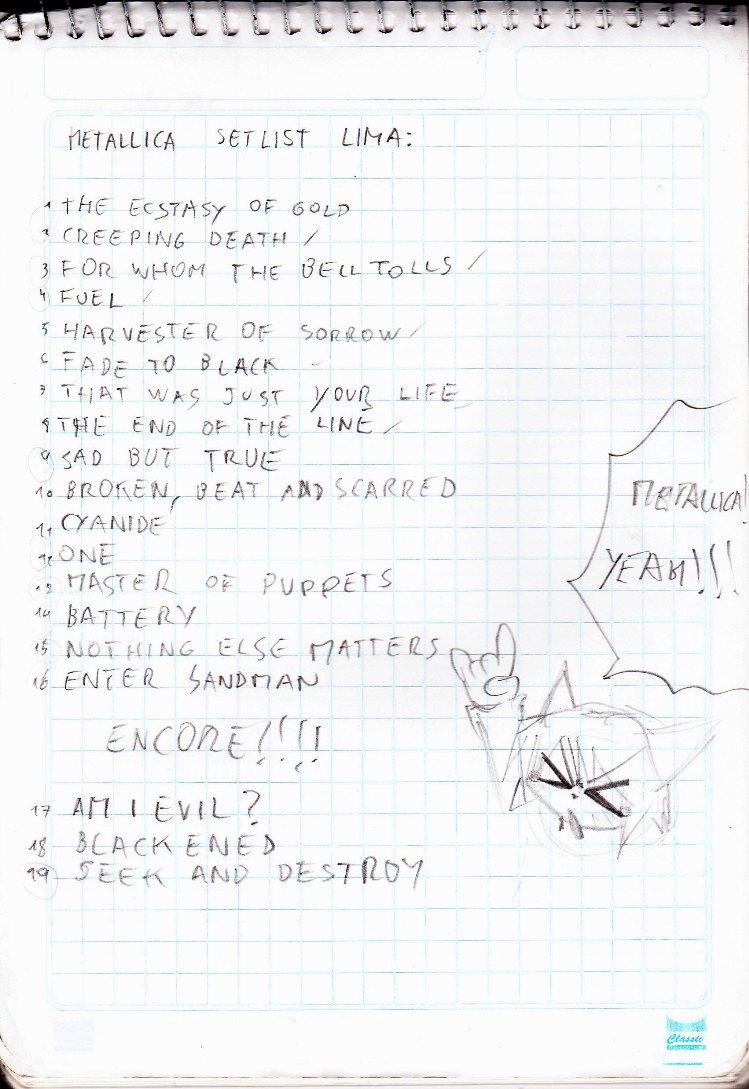 METALLICA SETLIST LIMA:
1 THE ECSTASY OF GOLD
2 CREEPING DEATH /
3 FOR WHOM THE BELL TOLLS /
4 FUEL /
5 HARVESTER OF SORROW /
6 FADE TO BLACK -
7 THAT WAS JUST YOUR LIFE
8 THE END OF THE LINE /
9 SAD BUT TRUE
10 BROKEN, BEAT AND SCARRED
11 CYANIDE
12 ONE
13 MASTER OF PUPPETS
14 BATTERY
15 NOTHING ELSE MATTERS
16 ENTER SANDMAN
ENCORE!!!!
17 AM I EVIL?
18 BLACKENED
19 SEEK AND DESTROY
METALLICA!
YEAH!!!
Classic